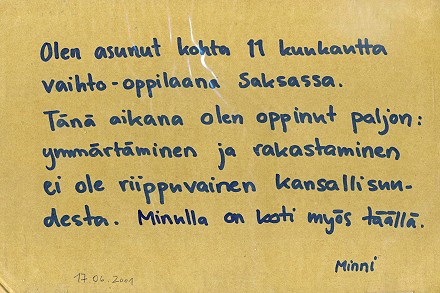 Olen asunut kohta 11 kuukautta
vaihto-oppilaana Saksassa.
Tänä aikana olen oppinut paljon:
ymmärtäminen ja rakastaminen
ei ole riippuvainen kansallisuu-
desta. Minulla on koti myös täällä.
Minni
17.06.2001